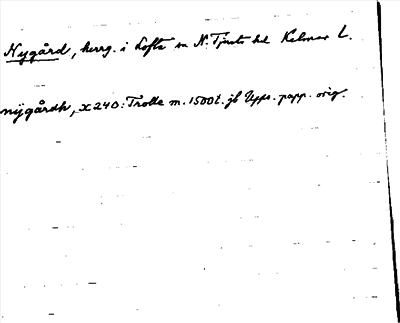 Nygård, herrg. i Lofta sn N. Tjusts hd Kalmar L.
nÿgårdh, x240: Trolle m. 1500t. jb Upps. papp. orig.